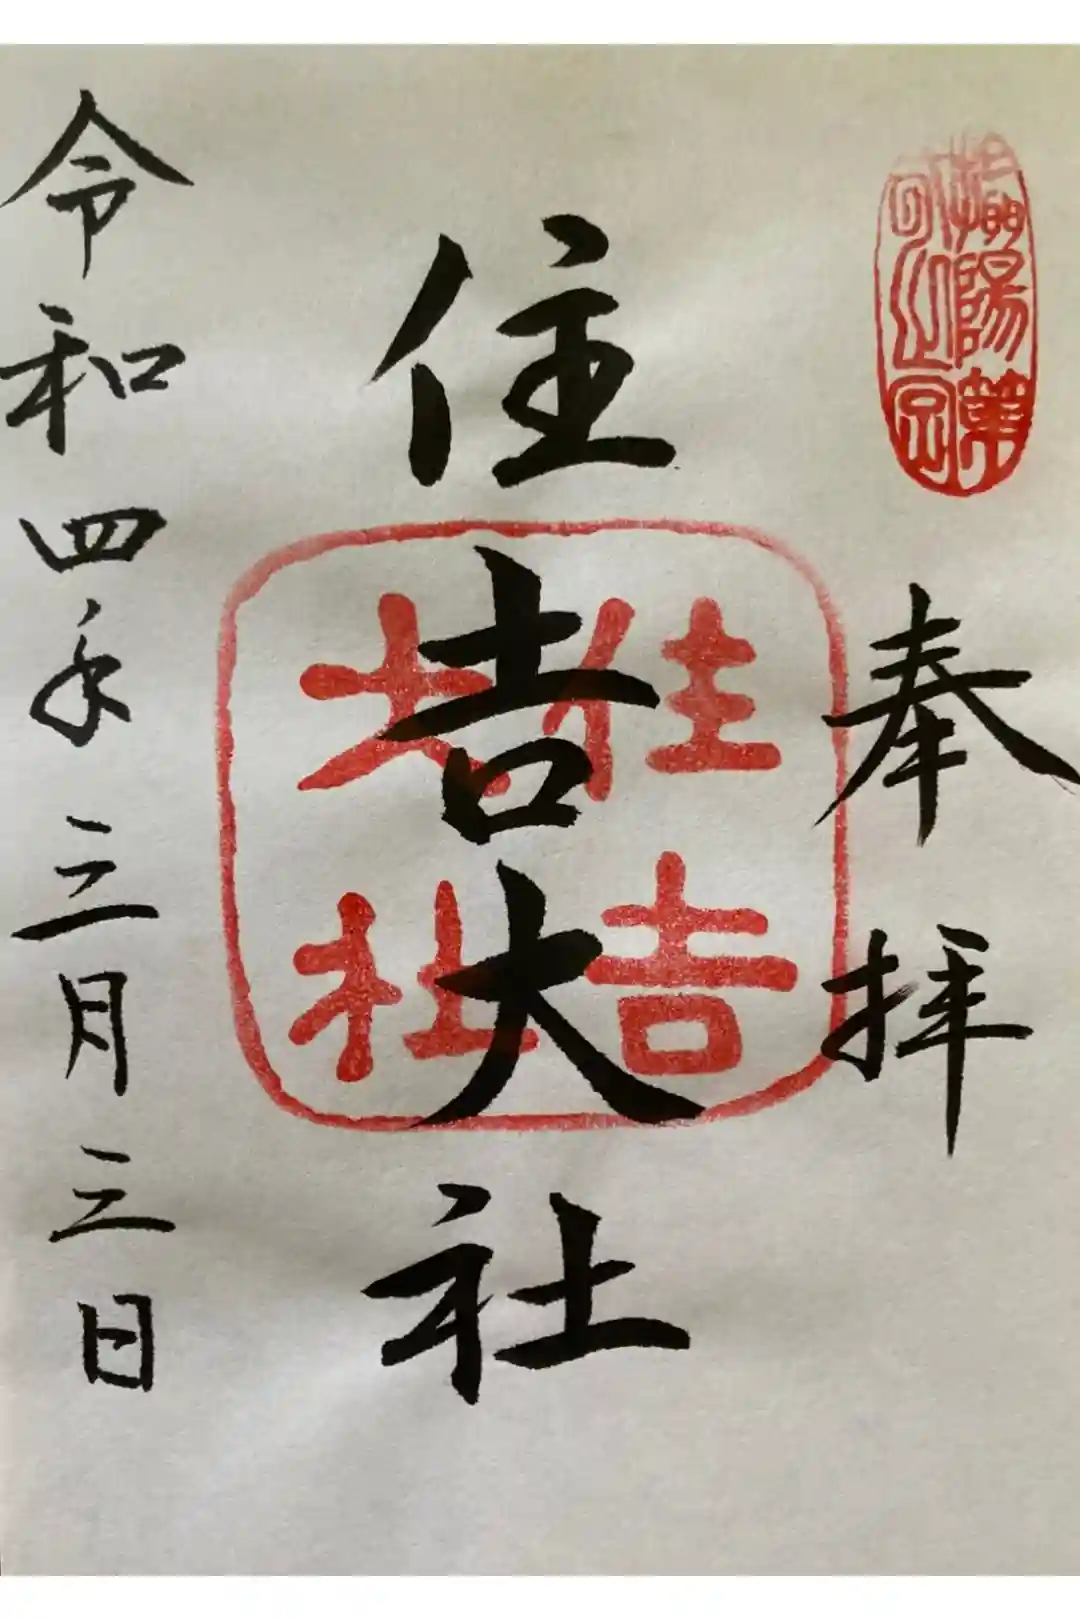 攝陽第
奉拝
住吉大社
住吉
大社
令和四年三月三日